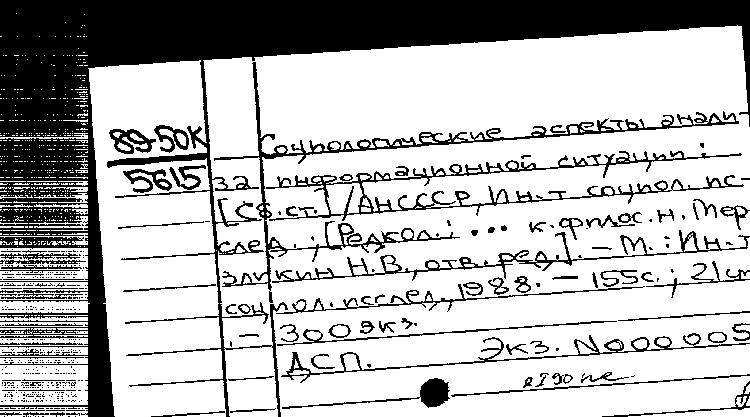 89-50К
5615
Социологические аспекты анали-
за информационной ситуации :
[Сб.ст.] / АНСССР, Ин-т социол. ис-
след. ; [Редкол.: ... к.филос.н. Мер
зликин Н.В., отв. ред.]. – М. : Ин-т
социол. исслед., 1988. – 155с. ; 21см
. – 300экз.
ДСП. Экз. N000005